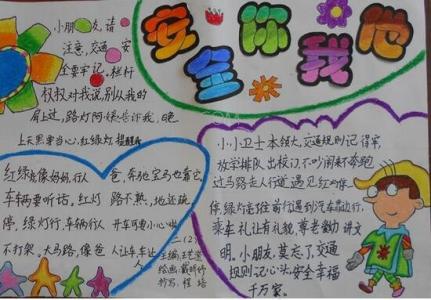 安全你我他
小朋友,请
注意,交通安
全要牢记。栏杆
杈杈对我说,别从我的
肩上过,路灯阿姨告诉我,晚
上天黑要当心,红绿灯提醒我
红绿灯像妈妈,行人
车辆要听话,红灯
停,绿灯行,车辆行人
不打架。大马路,像爸
爸,奔驰宝马也靠它,
路不熟,地还疏,
开车可要小心啦
人让车,车让
人
二(2)
绘画:戴
抄写:程
小小卫士本领大,交通规则记得牢,
放学排队出校门,不吵闹来不奔跑
过马路走人行道,遇见红灯停
停,绿灯亮了往前行,遇到汽车靠边行,
乘车礼让有礼貌,尊老爱幼讲文
明。小朋友,莫忘了,交通
规则记心头,安全幸福
千万家。